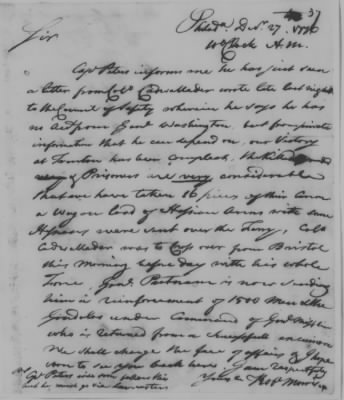 37
Philad.a Dec.r 27. 1776
10 oClock A.M.
Sir
Capt Peters informs me he has just seen
a letter from Col.o Cadwallader wrote late last night
to the Council of Safety wherein he says he has
no acct from Gen.l Washington, but from private
information that he can depend on, our Victory
at Trenton has been Compleat, the Killed
& Prisoners are very considerable
that we have taken 16 pieces of their Cannon
a Waggon load of Hessian Arms with some
Hessians were sent over the Ferry, Col.o
Cadwallader was to Cross over from Bristol
this Morning before day with his whole
Force, Gen.l Putnam is now sending
him a reinforcement of 1500 Men & the
under Command of Gen.l Mifflin
who is returned from a successfull excursion
We shall change the face of affairs & I hope
soon to see you back here. I am respectfully
Yours &c Rob.t Morris
Capt Peters will soon follow this
and he must go via